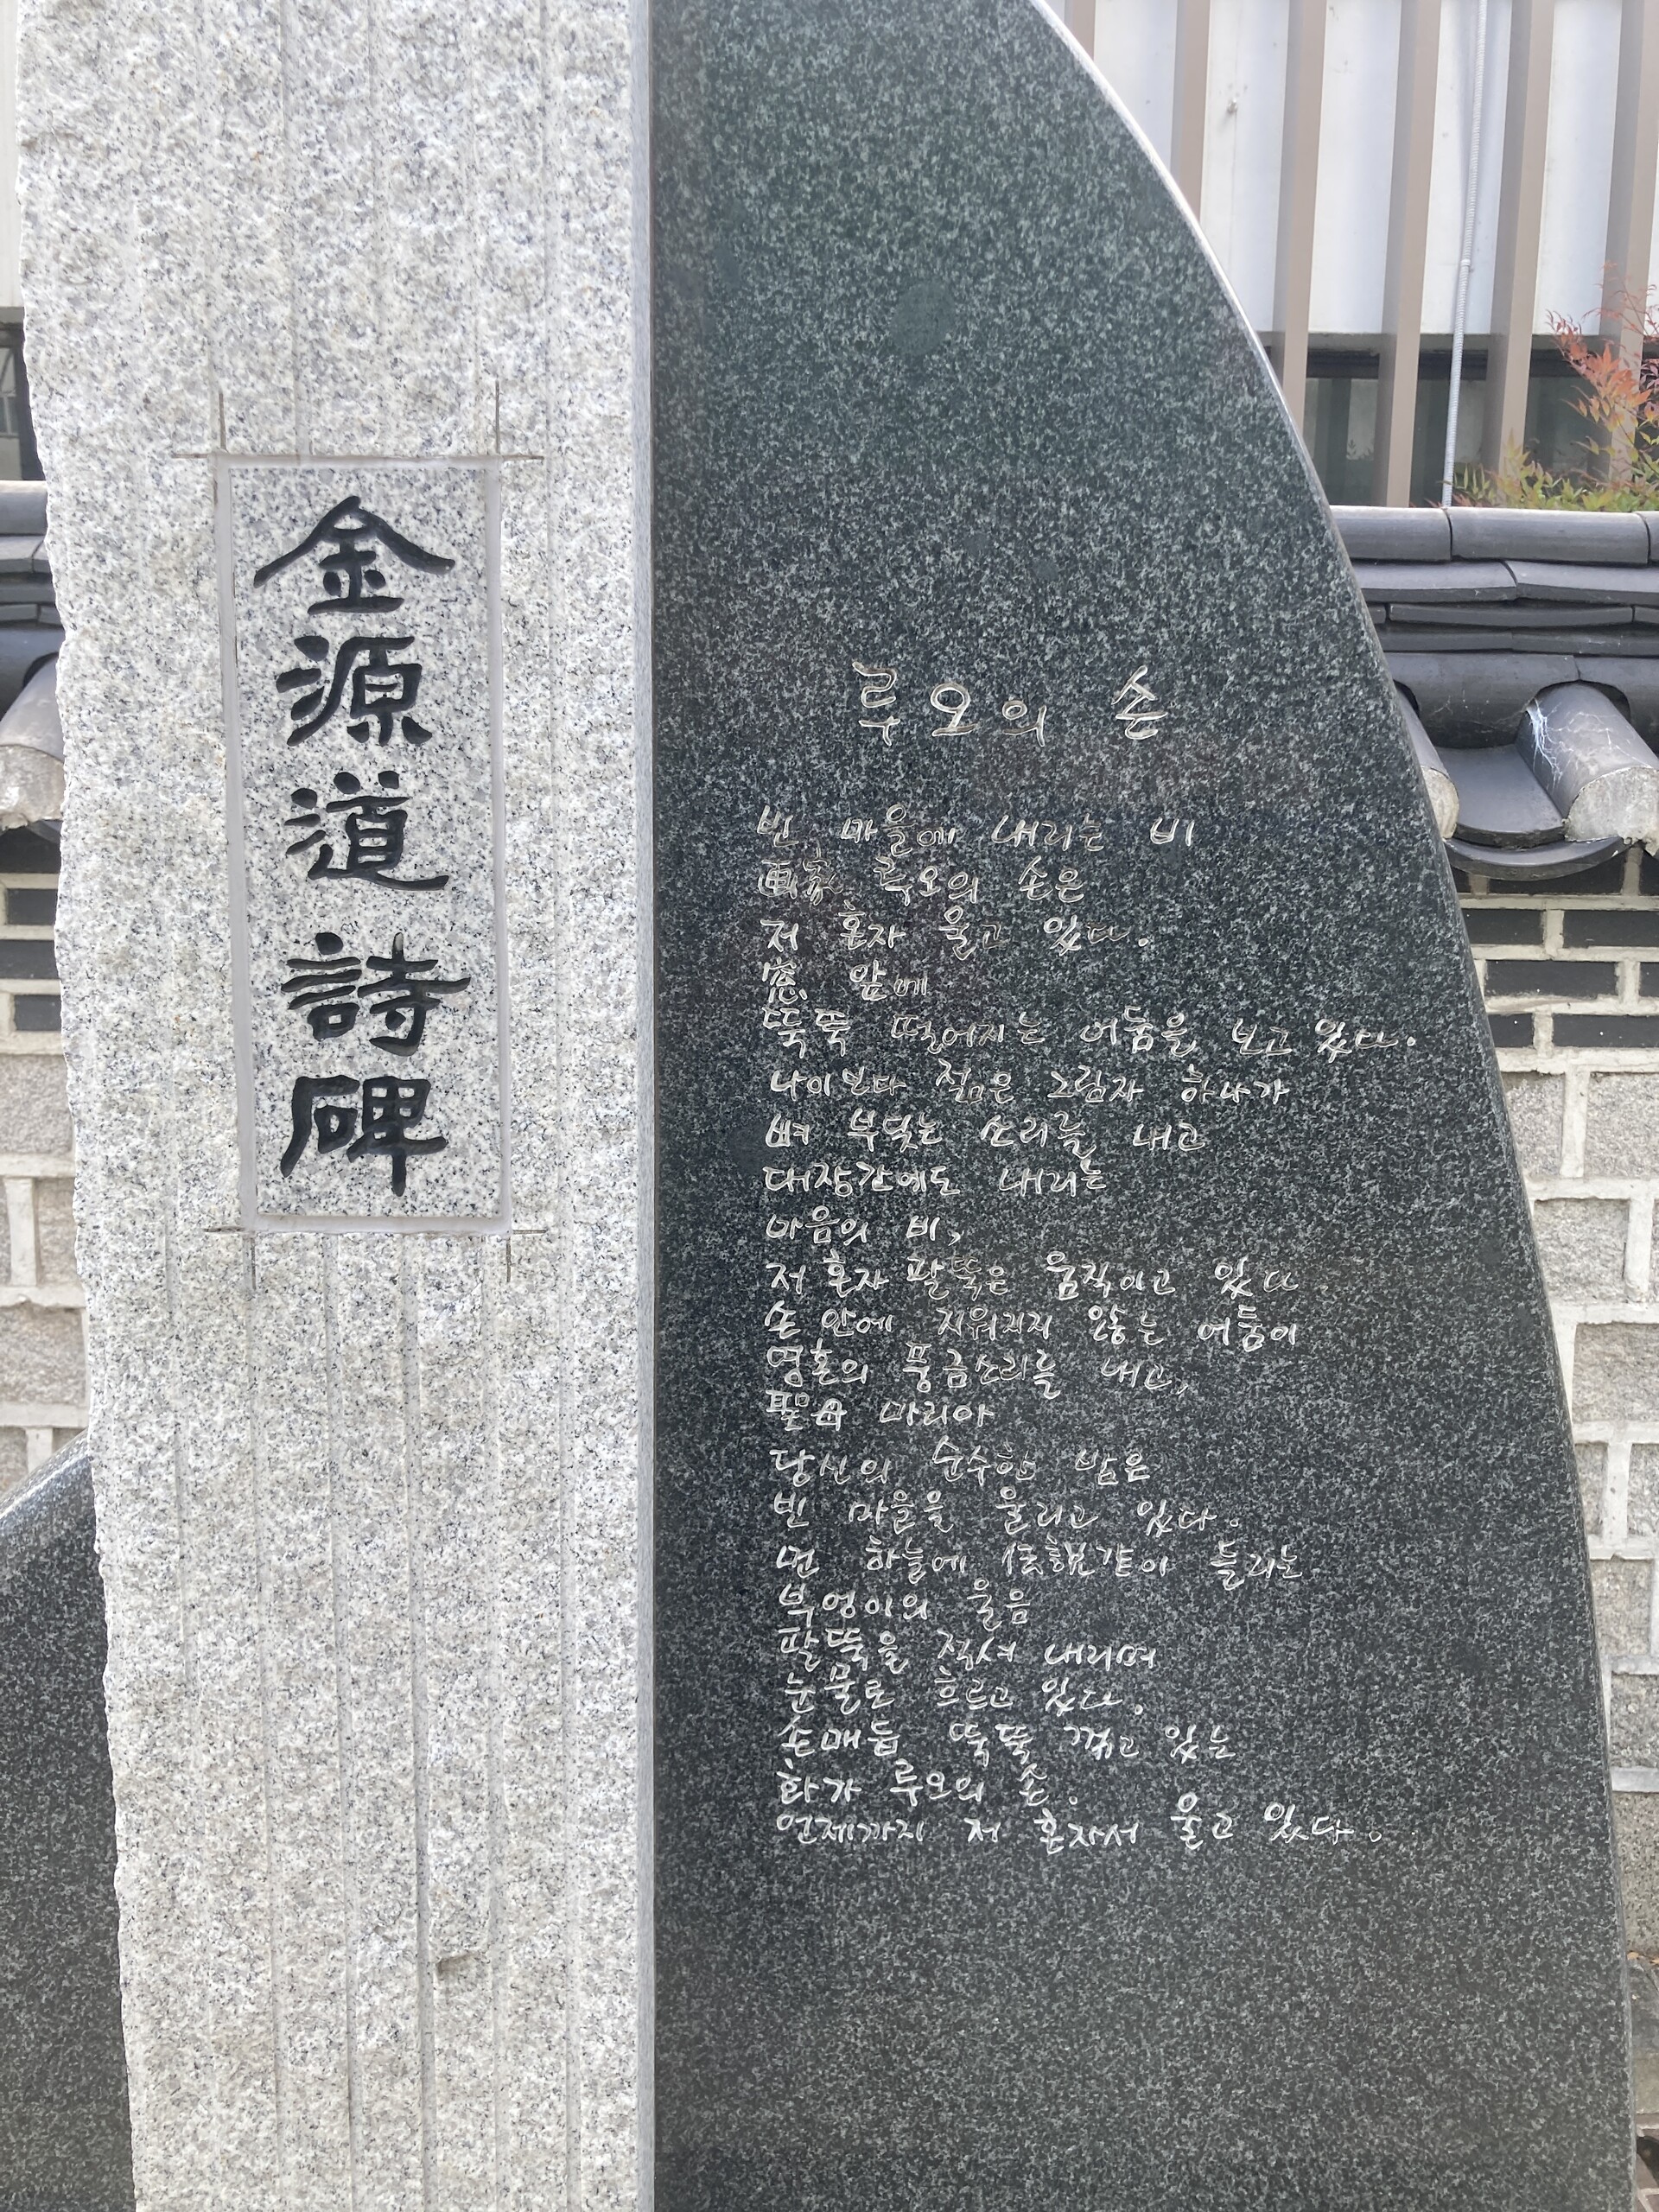 金源道 詩碑
루오의 손
빈 마을에 내리는 비
画家 루오의 손은
저 혼자 울고 있다.
窓 앞에
뚝뚝 떨어지는 어둠을 보고 있다.
나이보다 젊은 그림자 하나가
뼈 부딪는 소리를 내고
대장간에도 내리는
마음의 비,
저 혼자 팔뚝은 움직이고 있다
손 안에 지워지지 않는 어둠이
영혼의 풍금소리를 내고,
聖母 마리아
당신의 순수한 밤은
빈 마을을 울리고 있다.
먼 하늘에 들리는
부엉이의 울음
팔뚝을 적셔 내리며
눈물로 흐르고 있다.
손매듭 뚝뚝 꺾고 있는
화가 루오의 손.
언제까지 저 혼자서 울고 있다.